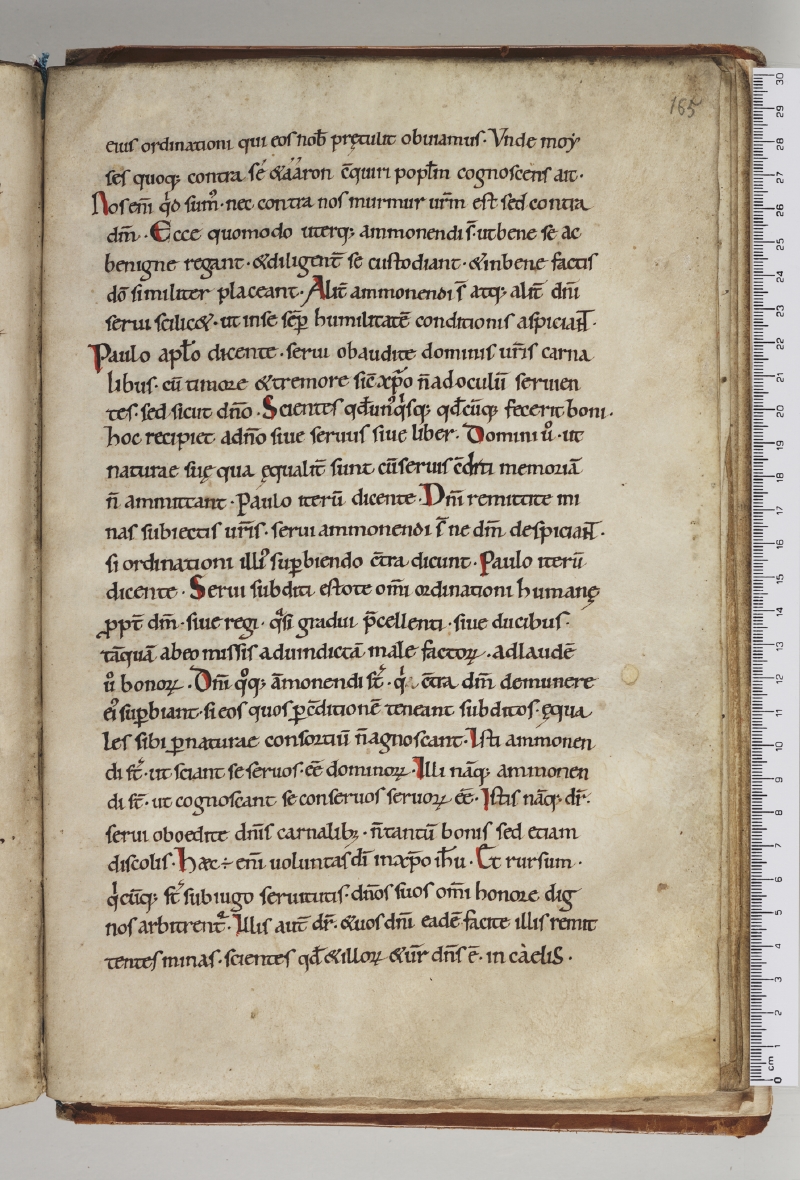 165
eius ordinationi qui eos nob̄ prętulit obuiamus· Vnde moy
ses quoq; contra sé &ááron c̄quiri popl̄m cognoscens ait·
Nos em̄ qͥd sumꝰ· nec contra nos murmur ur̄m est sed contra
dm̄· Ecce quomodo uterq; ammonendi s̄· ut bene se ac
benigne regant· & diligent̄ se custodiant· & in bene factis
dō similiter placeant· Alit̄ ammonendi s̄ atq; alit̄ dn̄i
serui scilic&· ut in se sēp humilitatē conditionis aspiciaɴ̄t·
Paulo apl̄o dicente· serui obaudite dominis ur̄is carna
libus· cū timore & tremore sic̄ xp̄o n̄ ad oculū seruien
tes· sed sicut dn̄o· Scientes qd̄ unͥqͥsq; qd̄cūq; fecerit boni·
hoc recipiet ad n̄o siue seruus siue liber· Domini u̾· ut
naturae suę qua ęqualit̄ sunt cū seruis c̄diti memoriā
n̄ ammittant· Paulo iterū dicente· Dn̄i remittite mi
nas subiectis ur̄is· serui ammonendi s̄ ne dm̄ despiciaɴ̄t·
si ordinationi illiꝰ suꝑbiendo c̄tra dicunt· Paulo iterū
dicente· Serui subditi estote om̄i ordinationi humanę
ꝓpt̄ dm̄· siue regi· qͣsi gradui p̄cellenti· siue ducibus·
tāquā ab eo missis ad uindictā male factoꝝ· ad laudē
u̾ bonoꝝ· Dn̄i qͦq; āmonendi st̄· qͥ c̄tra dm̄ de munere
eiꝰ suꝑbiant· si eos quos ꝑ c̄ditionē teneant subditos· ęqua
les sibi ꝑ naturae consortiū n̄ agnoscant· Isti ammonen
di st̄· ut sciant se seruos· eē dominoꝝ· Illi nāq; ammonen
di st̄· ut cognoscant se conseruos seruoꝝ eē· Istis nāq; dr̄·
serui oboedite dn̄is carnalibꝫ· n̄ tantū bonis sed etiam
discolis· Hæc ÷ em̄ uoluntas dī in xp̄o ih̄u· Et rursum·
qͥcūq; st̄ sub iugo seruitutis· dn̄os suos om̄i honore dig
nos arbitrent᷑· Illis aut̄ dr̄· & uos dn̄i eadē facite illis remit
tentes minas· scientes qd̄ & illoꝝ & ur̄ dn̄s ē· in caelis·